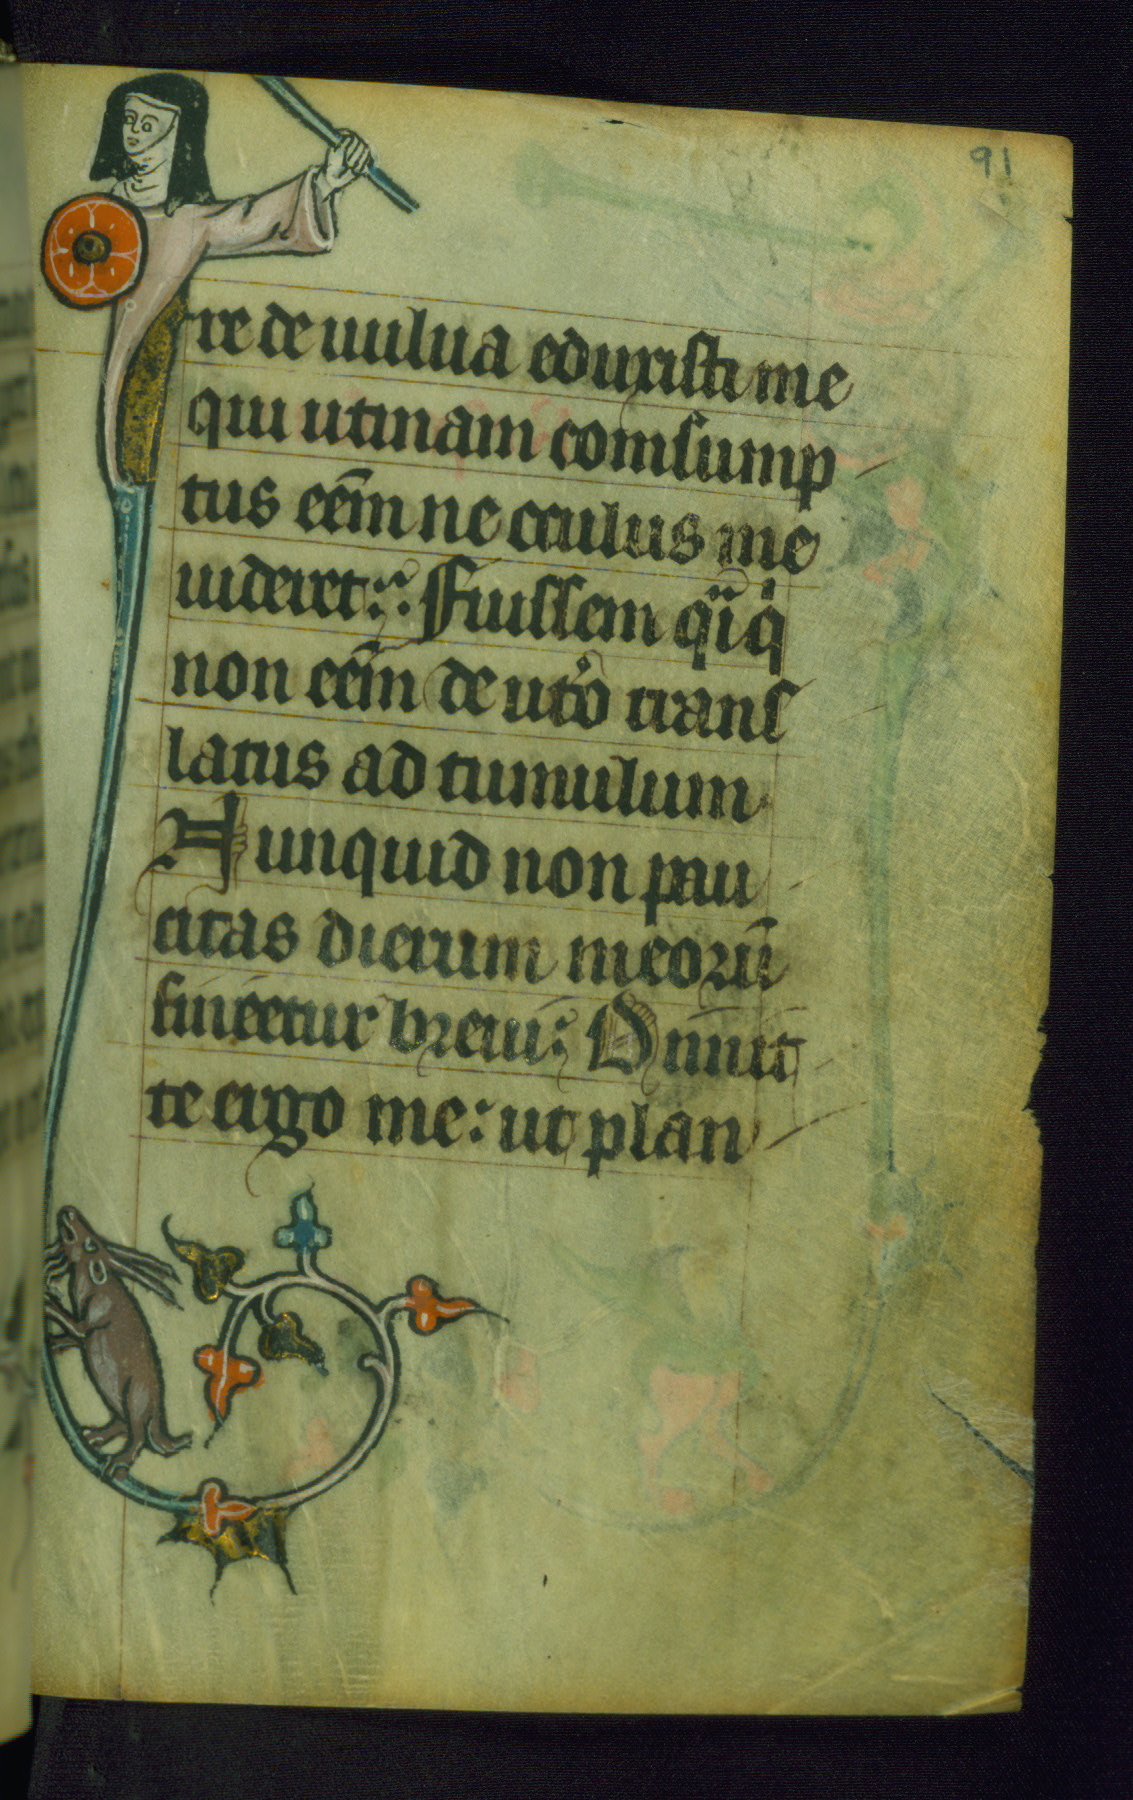 91
re de uulua eduxisti me
qui utinam comsump
tus eēm ne oculus me
uideret: Fuissem q̄i q̇
non eēm de utͦo trans
latus ad tumulum
Nunquid non pau
citas dierum meorū
finietur breui: Dimit
te ergo me: ut plan